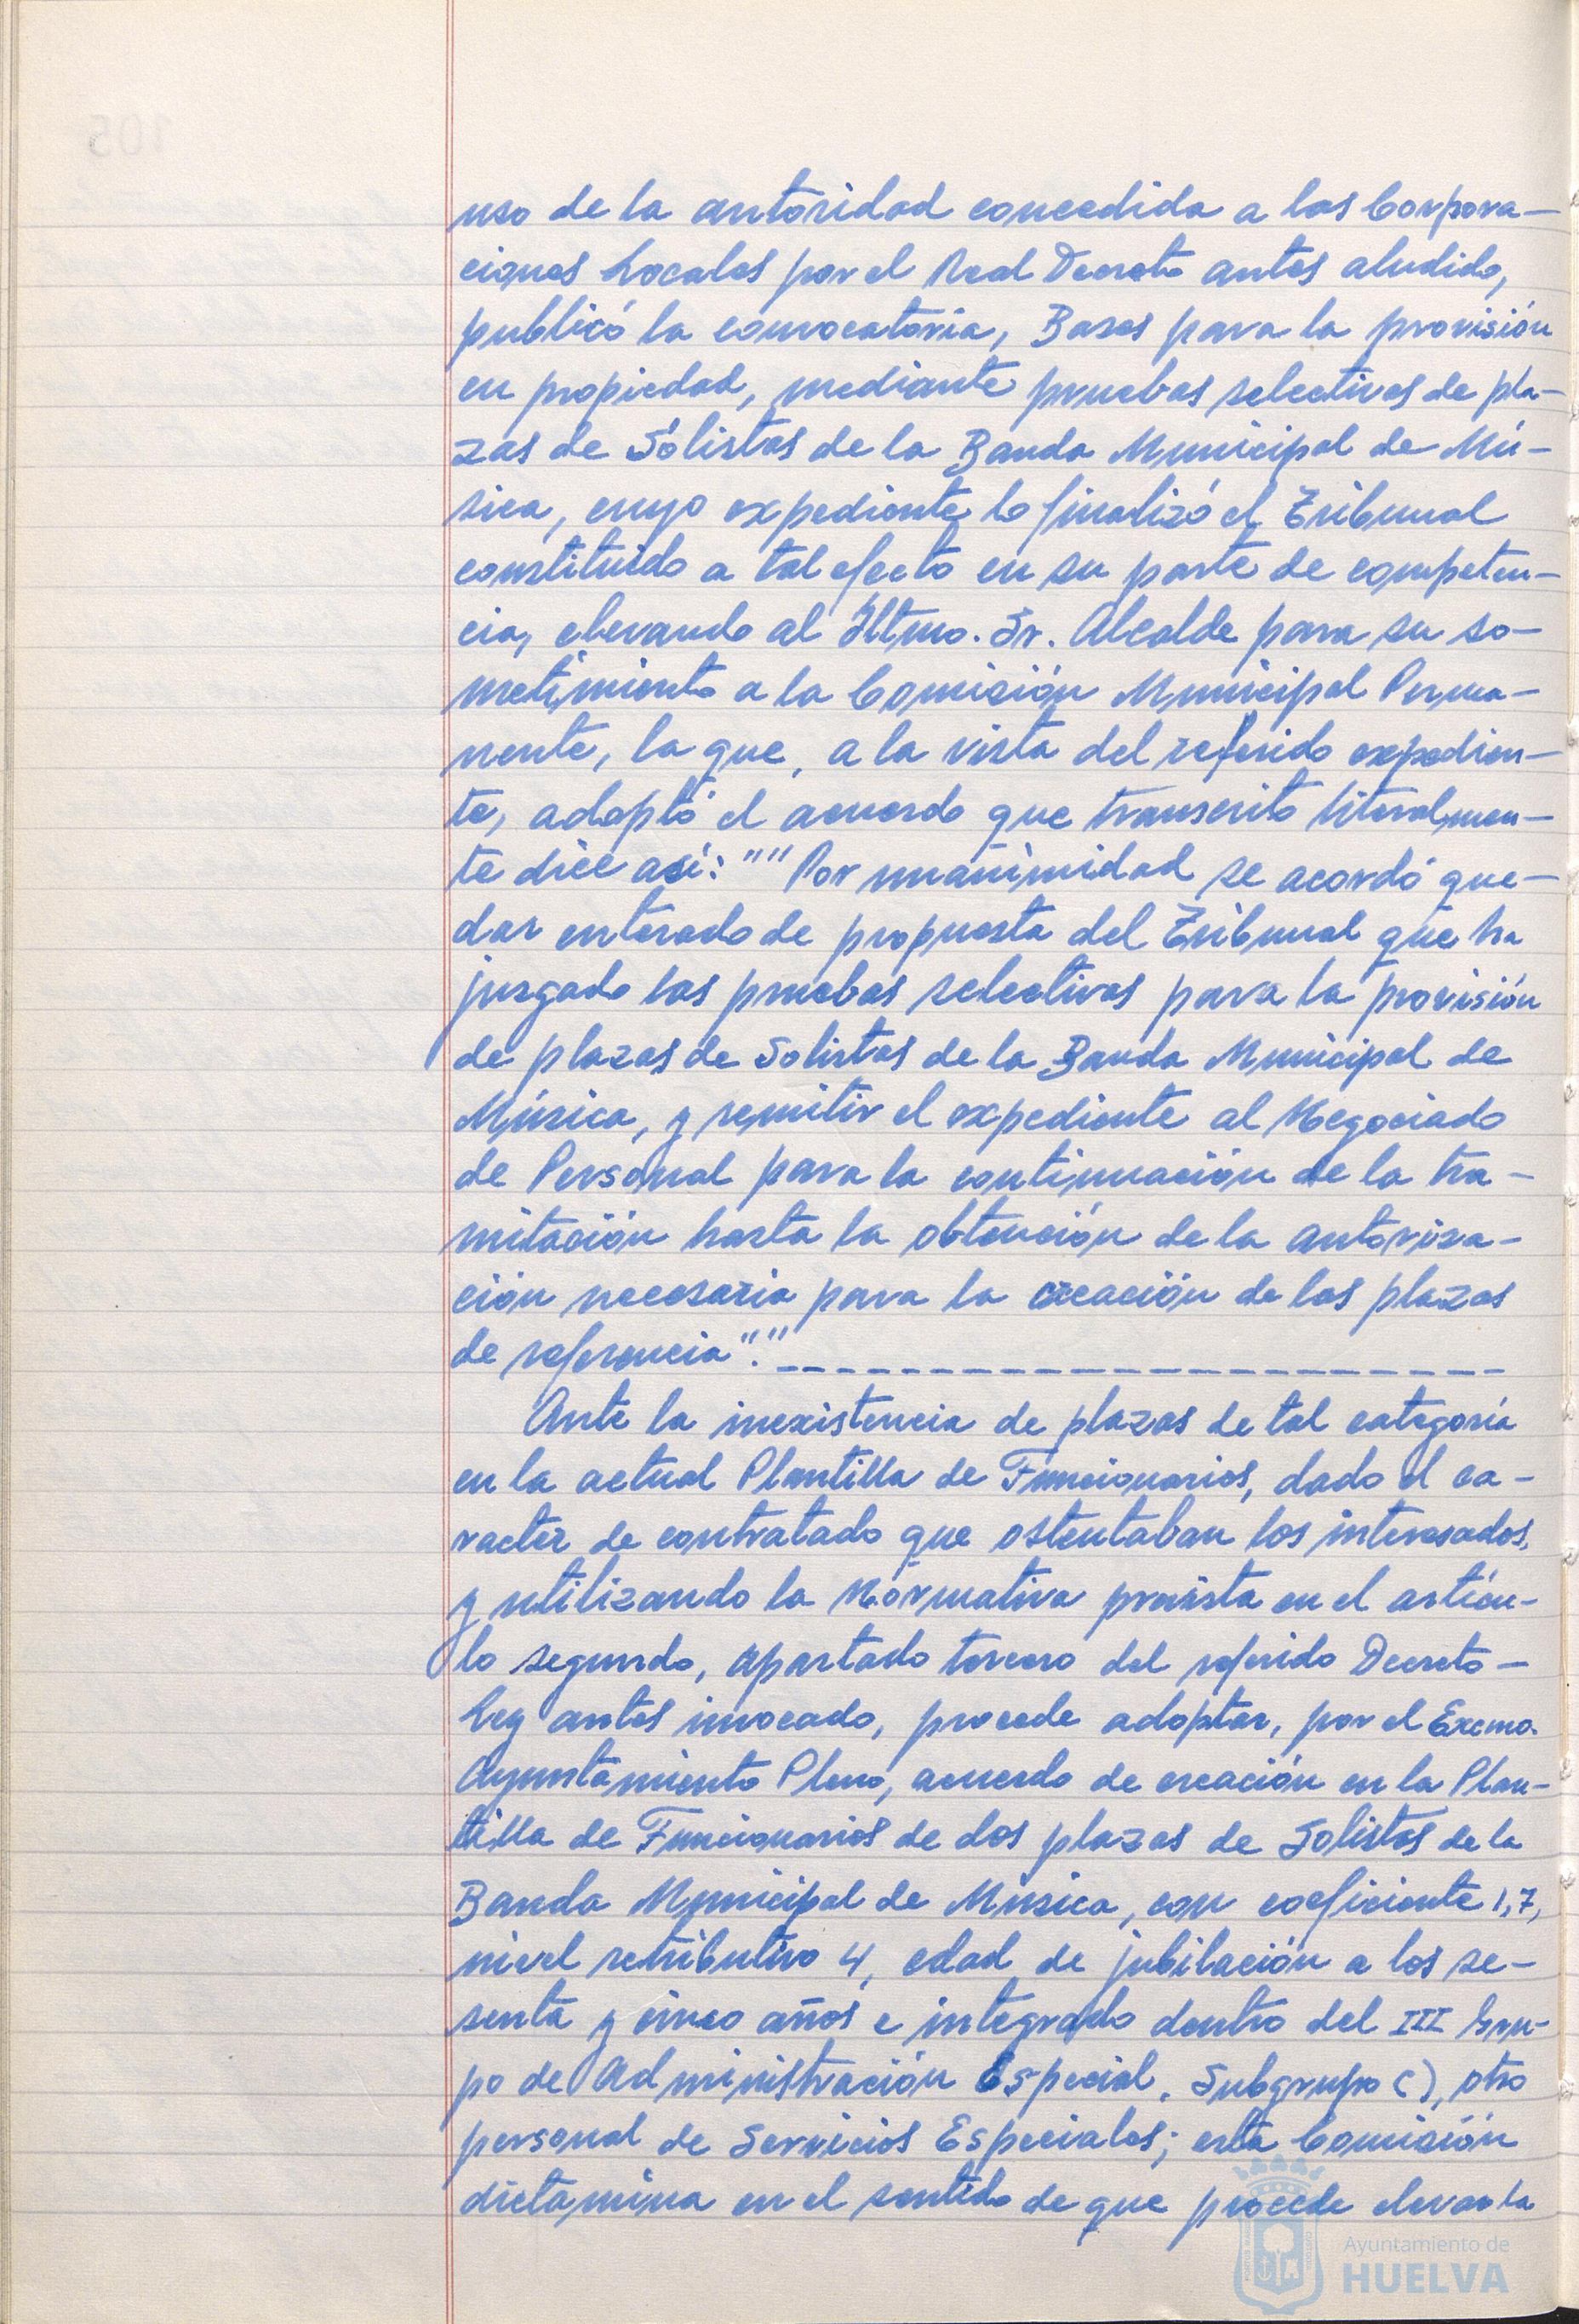 uso de la autoridad concedida a las Corpora-
ciones Locales por el Real Decreto antes aludido,
publicó la convocatoria, Bases para la provisión
en propiedad, mediante pruebas selectivas de pla-
zas de Sólistas de la Banda Municipal de Mú-
sica, cuyo expediente lo finalizó el Tribunal
constituido a tal efecto en su parte de competen-
cia, elevando al Iltmo. Sr. Alcalde para su so-
metimiento a la Comisión Municipal Perma-
nente, la que, a la vista del referido expedien-
te, adoptó el acuerdo que transcrito literalmen-
te dice así: "" Por unanimidad se acordó que-
dar enterado de propuesta del Tribunal que ha
juzgado las pruebas selectivas para la provisión
de plazas de Solistas de la Banda Municipal de
Música, y remitir el expediente al Negociado
de Personal para la continuación de la tra-
mitación hasta la obtención de la autoriza-
ción necesaria para la creación de las plazas
de referencia"."
Ante la inexistencia de plazas de tal categoría
en la actual Plantilla de Funcionarios, dado el ca-
racter de contratado que ostentaban los interesados,
y utilizando la Normativa prevista en el artícu-
lo segundo, apartado tercero del referido Decreto-
Ley antes invocado, procede adoptar, por el Excmo.
Ayuntamiento Pleno, acuerdo de creación en la Plan-
tilla de Funcionarios de dos plazas de Solistas de la
Banda Municipal de Música, con coeficiente 1,7,
nivel retributivo 4, edad de jubilación a los se-
senta y cinco años e integrado dentro del III Gru-
po de Administración Especial, Subgrupo C), otro
personal de Servicios Especiales; esta Comisión
dictamina en el sentido de que procede elevar la
Ayuntamiento de
HUELVA